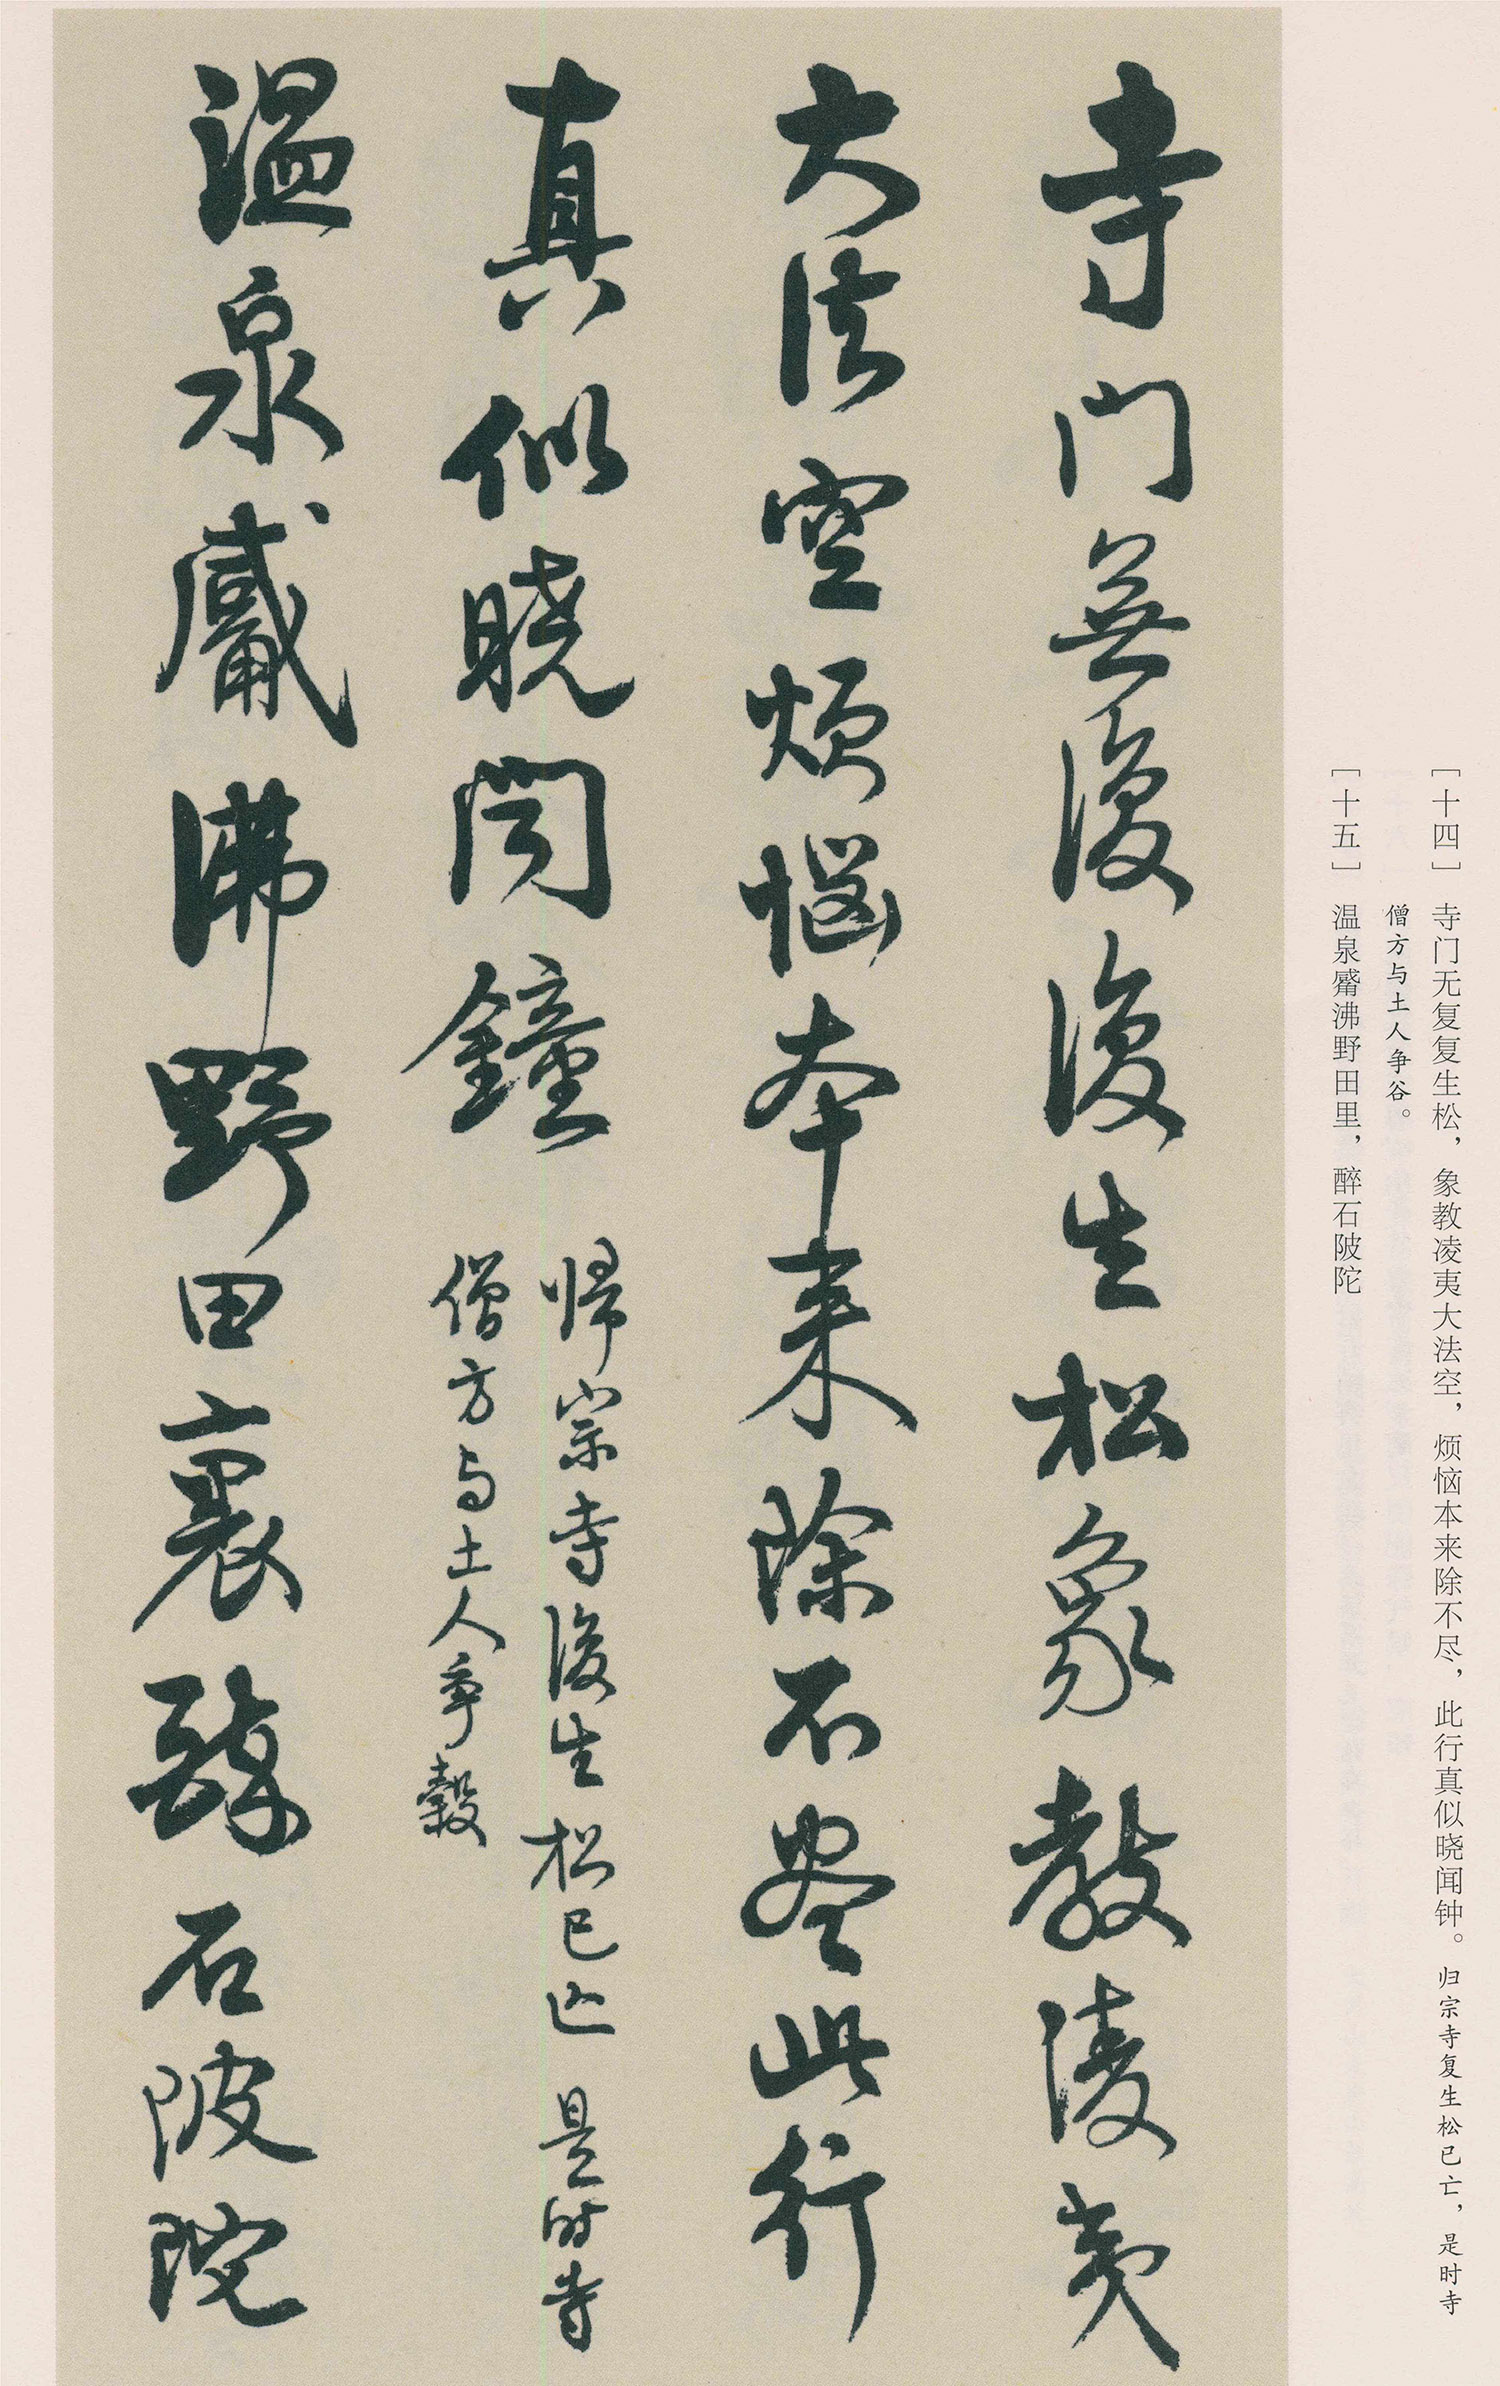 [十四] 寺门无复复生松，象教凌夷大法空，烦恼本来除不尽，此行真似晓闻钟。归宗寺复生松已亡，是时寺
僧方与土人争谷。
[十五] 温泉觱沸野田里，醉石陂陀
寺门無復復生松象教陵夷
大法空烦惱本来除不尽此行
真似曉闻鐘
歸宗寺復生松已亡是时寺
僧方与土人争穀
温泉觱沸野田裏醉石陂陀